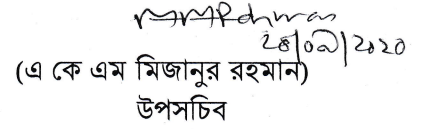 ২৪/০৯/২০২০
(এ কে এম মিজানুর রহমান)
উপসচিব